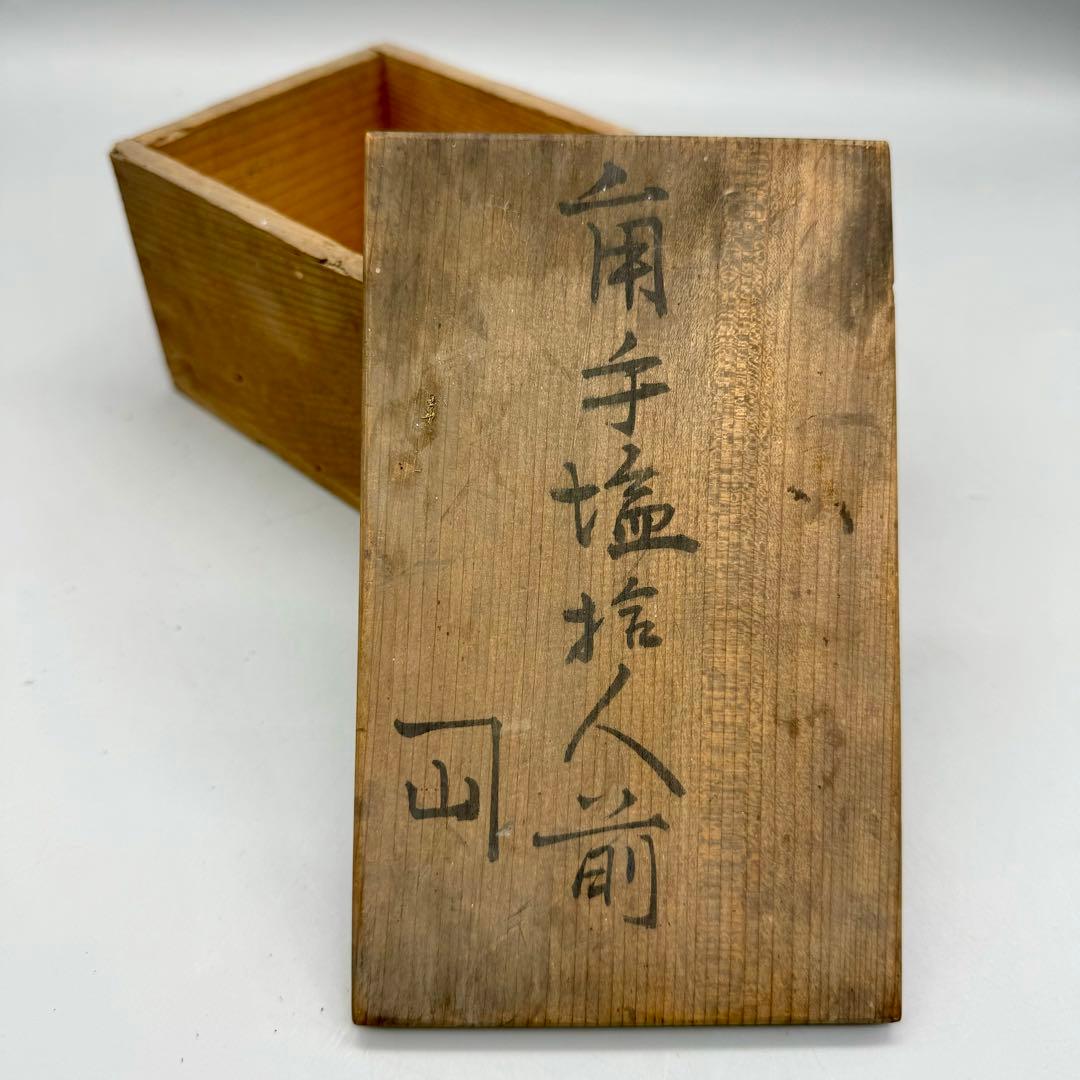 角手塩拾人前
山